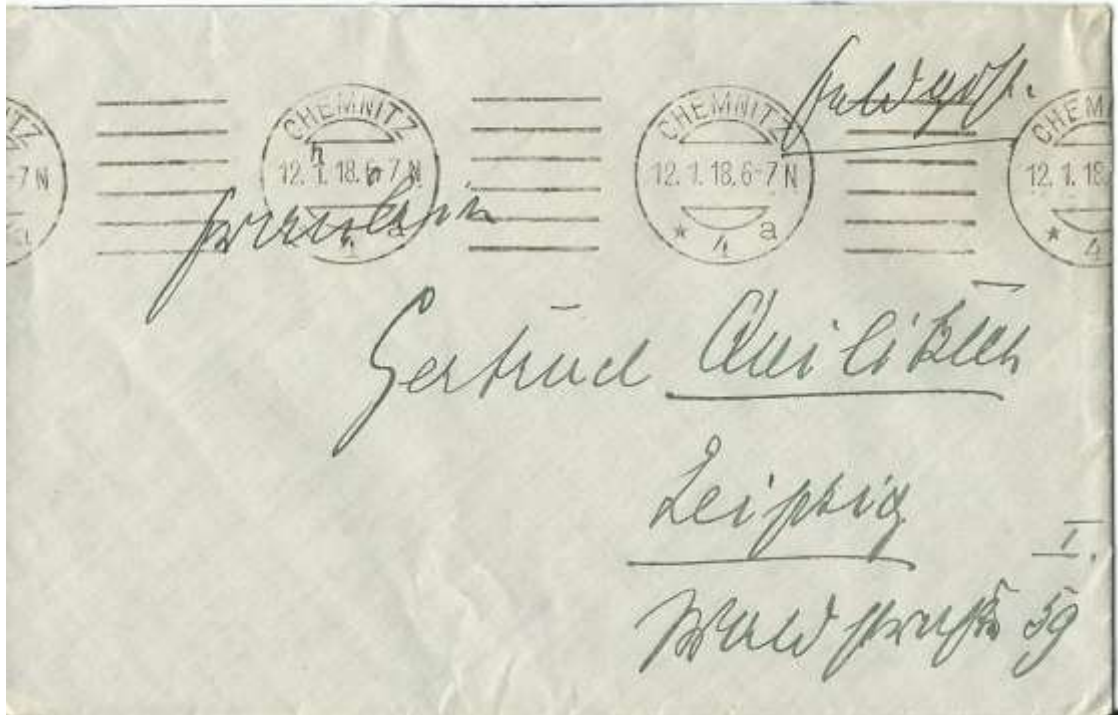 Feldpost.
CHEMNITZ
12.1.18.6-7 N
4 a
CHEMNITZ
12.1.18.6-7 N
* 4 a
CHEM
12.1.18
* 4
Fräulein
Gertrud
Leipzig
I.
Waldstraße 59